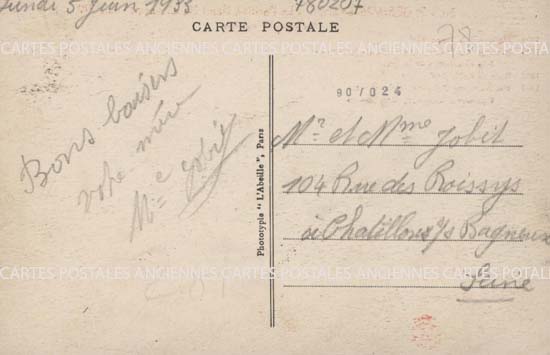 Lundi 5 Juin 1933
780207
CARTE POSTALE
78
CARTES POSTALES ANCIENNES CARTES POSTALES ANCIENNES
90/024
Bons baisers
votre mère
Me Jobit
Phototypie "L'Abeille", Paris
Mr et Mme Jobit
104 Rue des Roissys
à Chatillon s/s Bagneux
Seine
CARTES POSTALES ANCIENNES CARTES POSTALES ANCIENNES